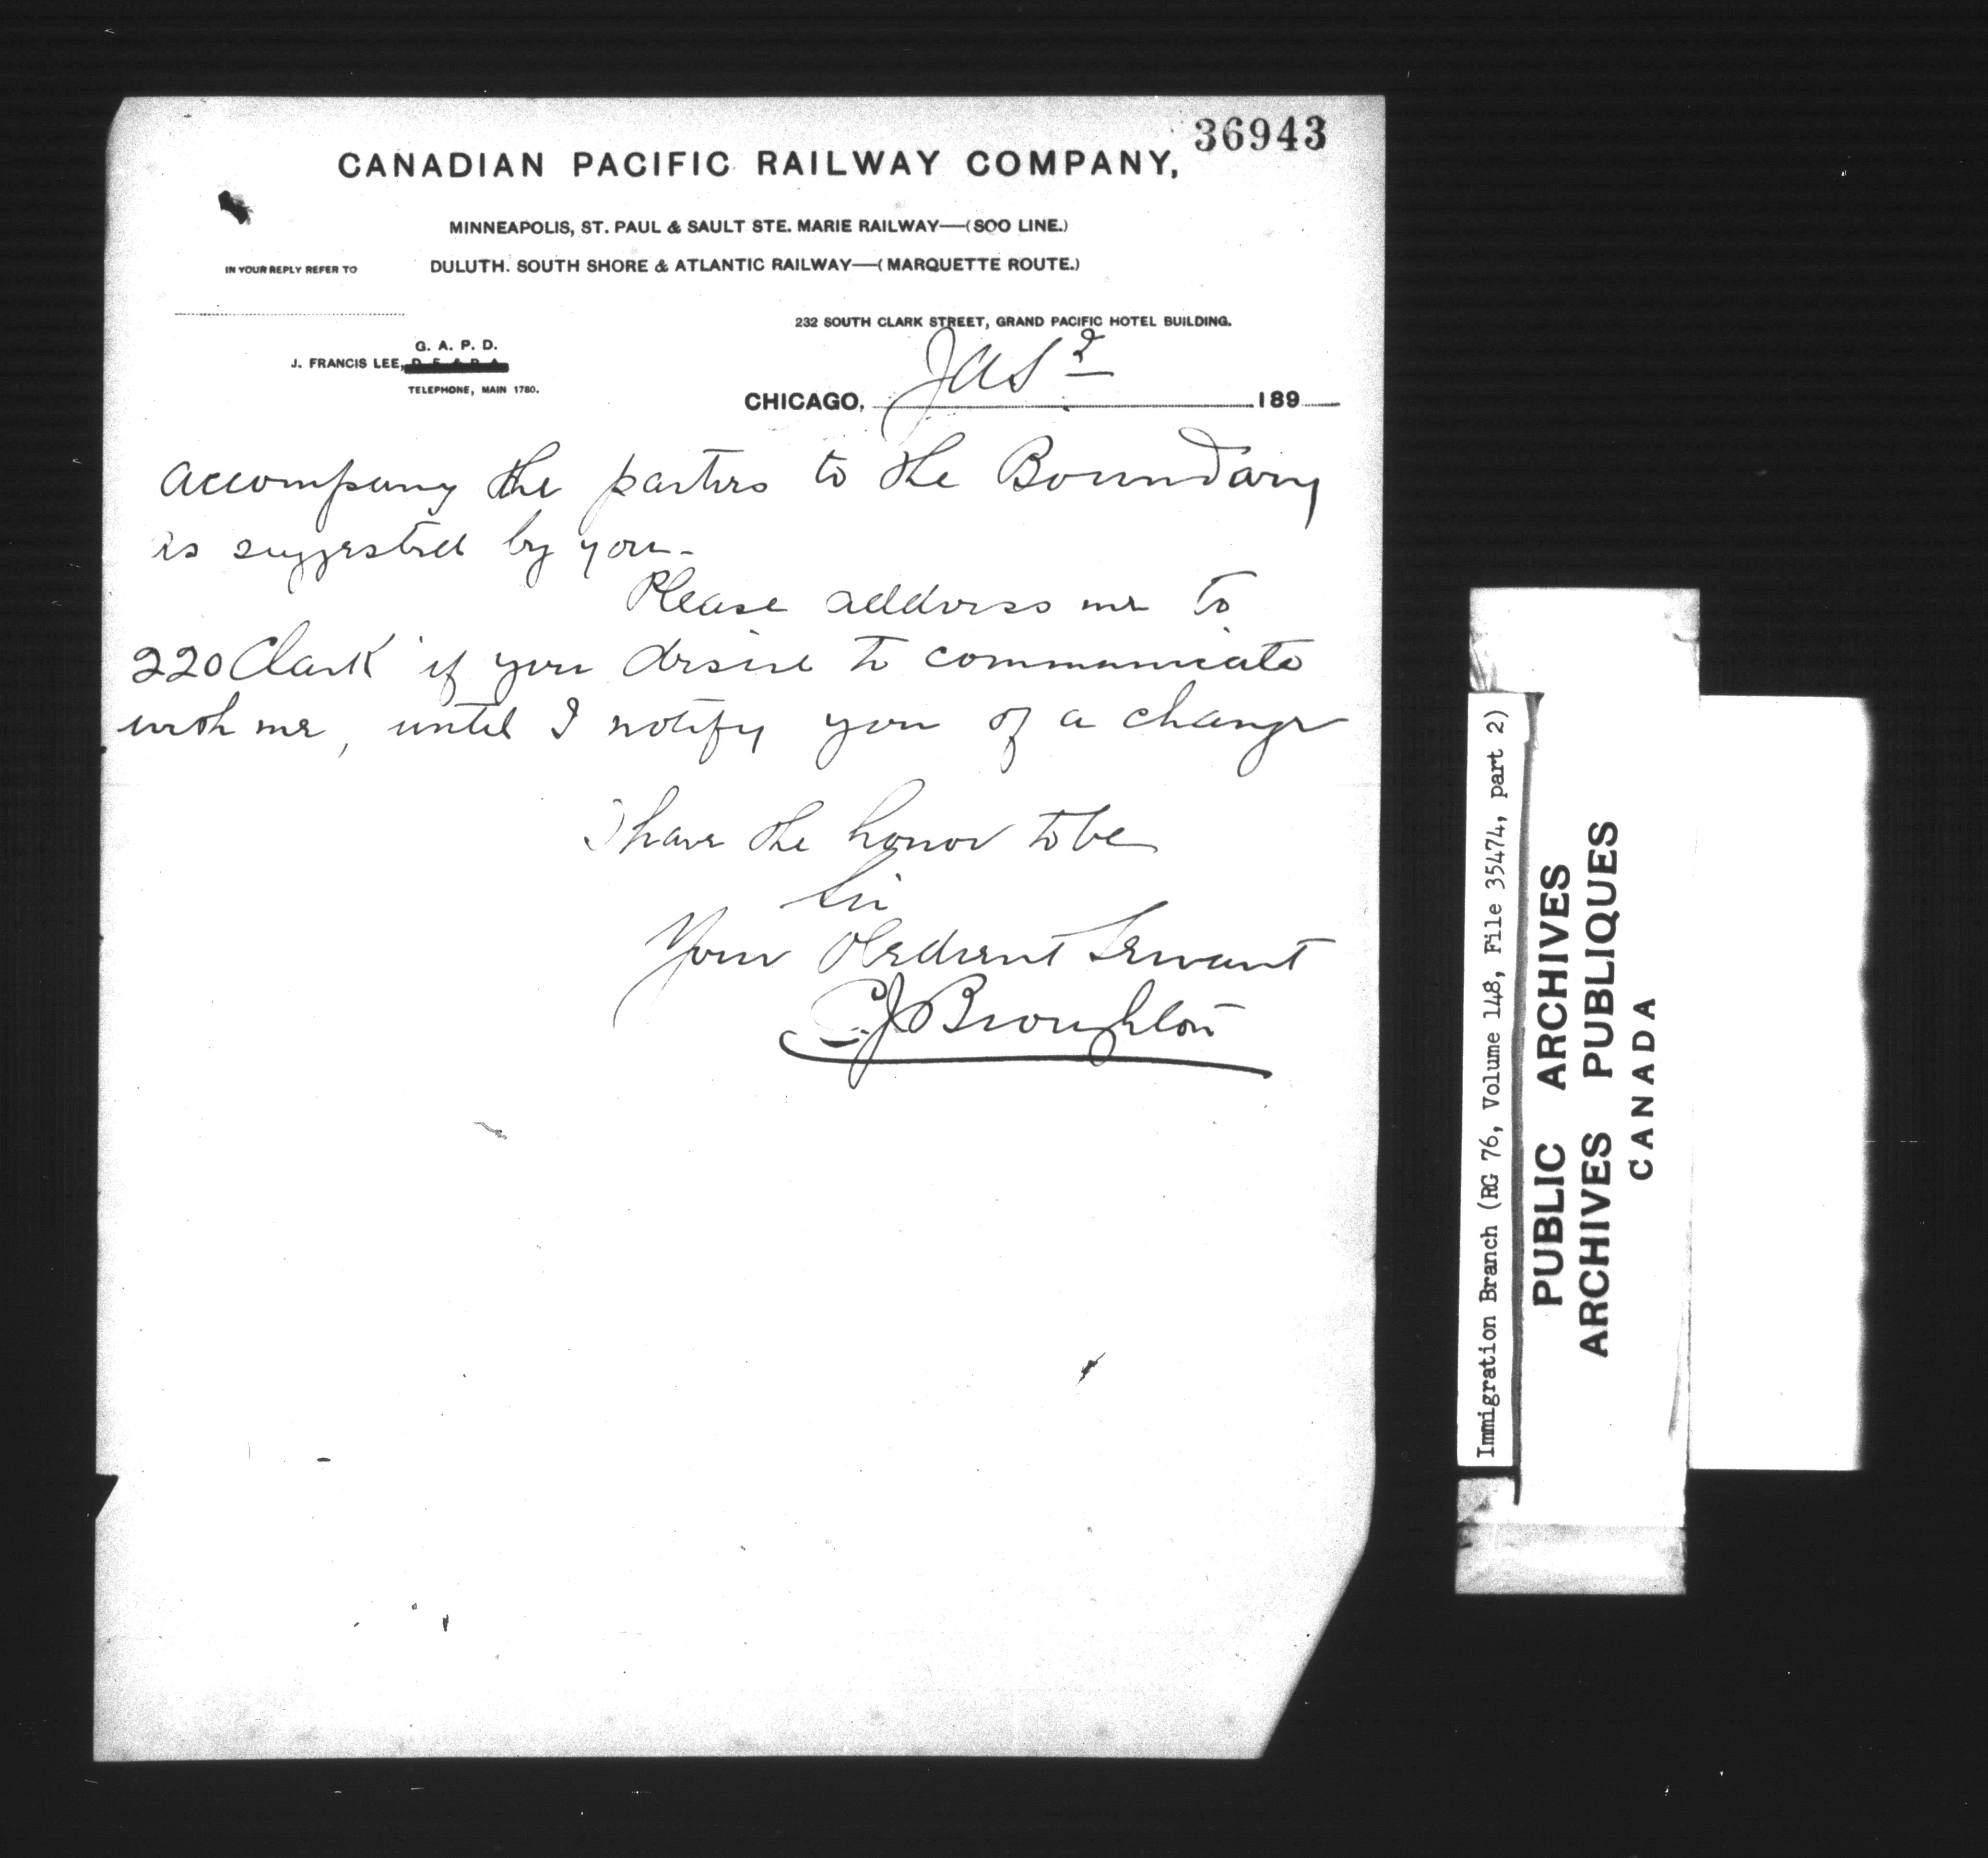 36943
CANADIAN PACIFIC RAILWAY COMPANY,
MINNEAPOLIS, ST. PAUL & SAULT STE. MARIE RAILWAY—(SOO LINE.)
IN YOUR REPLY REFER TO
DULUTH. SOUTH SHORE & ATLANTIC RAILWAY—(MARQUETTE ROUTE.)
232 SOUTH CLARK STREET, GRAND PACIFIC HOTEL BUILDING.
G. A. P. D.
J. FRANCIS LEE,
TELEPHONE, MAIN 1780.
CHICAGO, 189
accompany the parties to the Boundary
is suggested by you-
Please address me to
220 Clark if you desire to communicate
with me, until I notify you of a change
I have the honor to be
Sir
Your Obedient Servant
C.J. Broughton
Immigration Branch (RG 76, Volume 148, File 35474, part 2)
PUBLIC ARCHIVES
ARCHIVES PUBLIQUES
CANADA